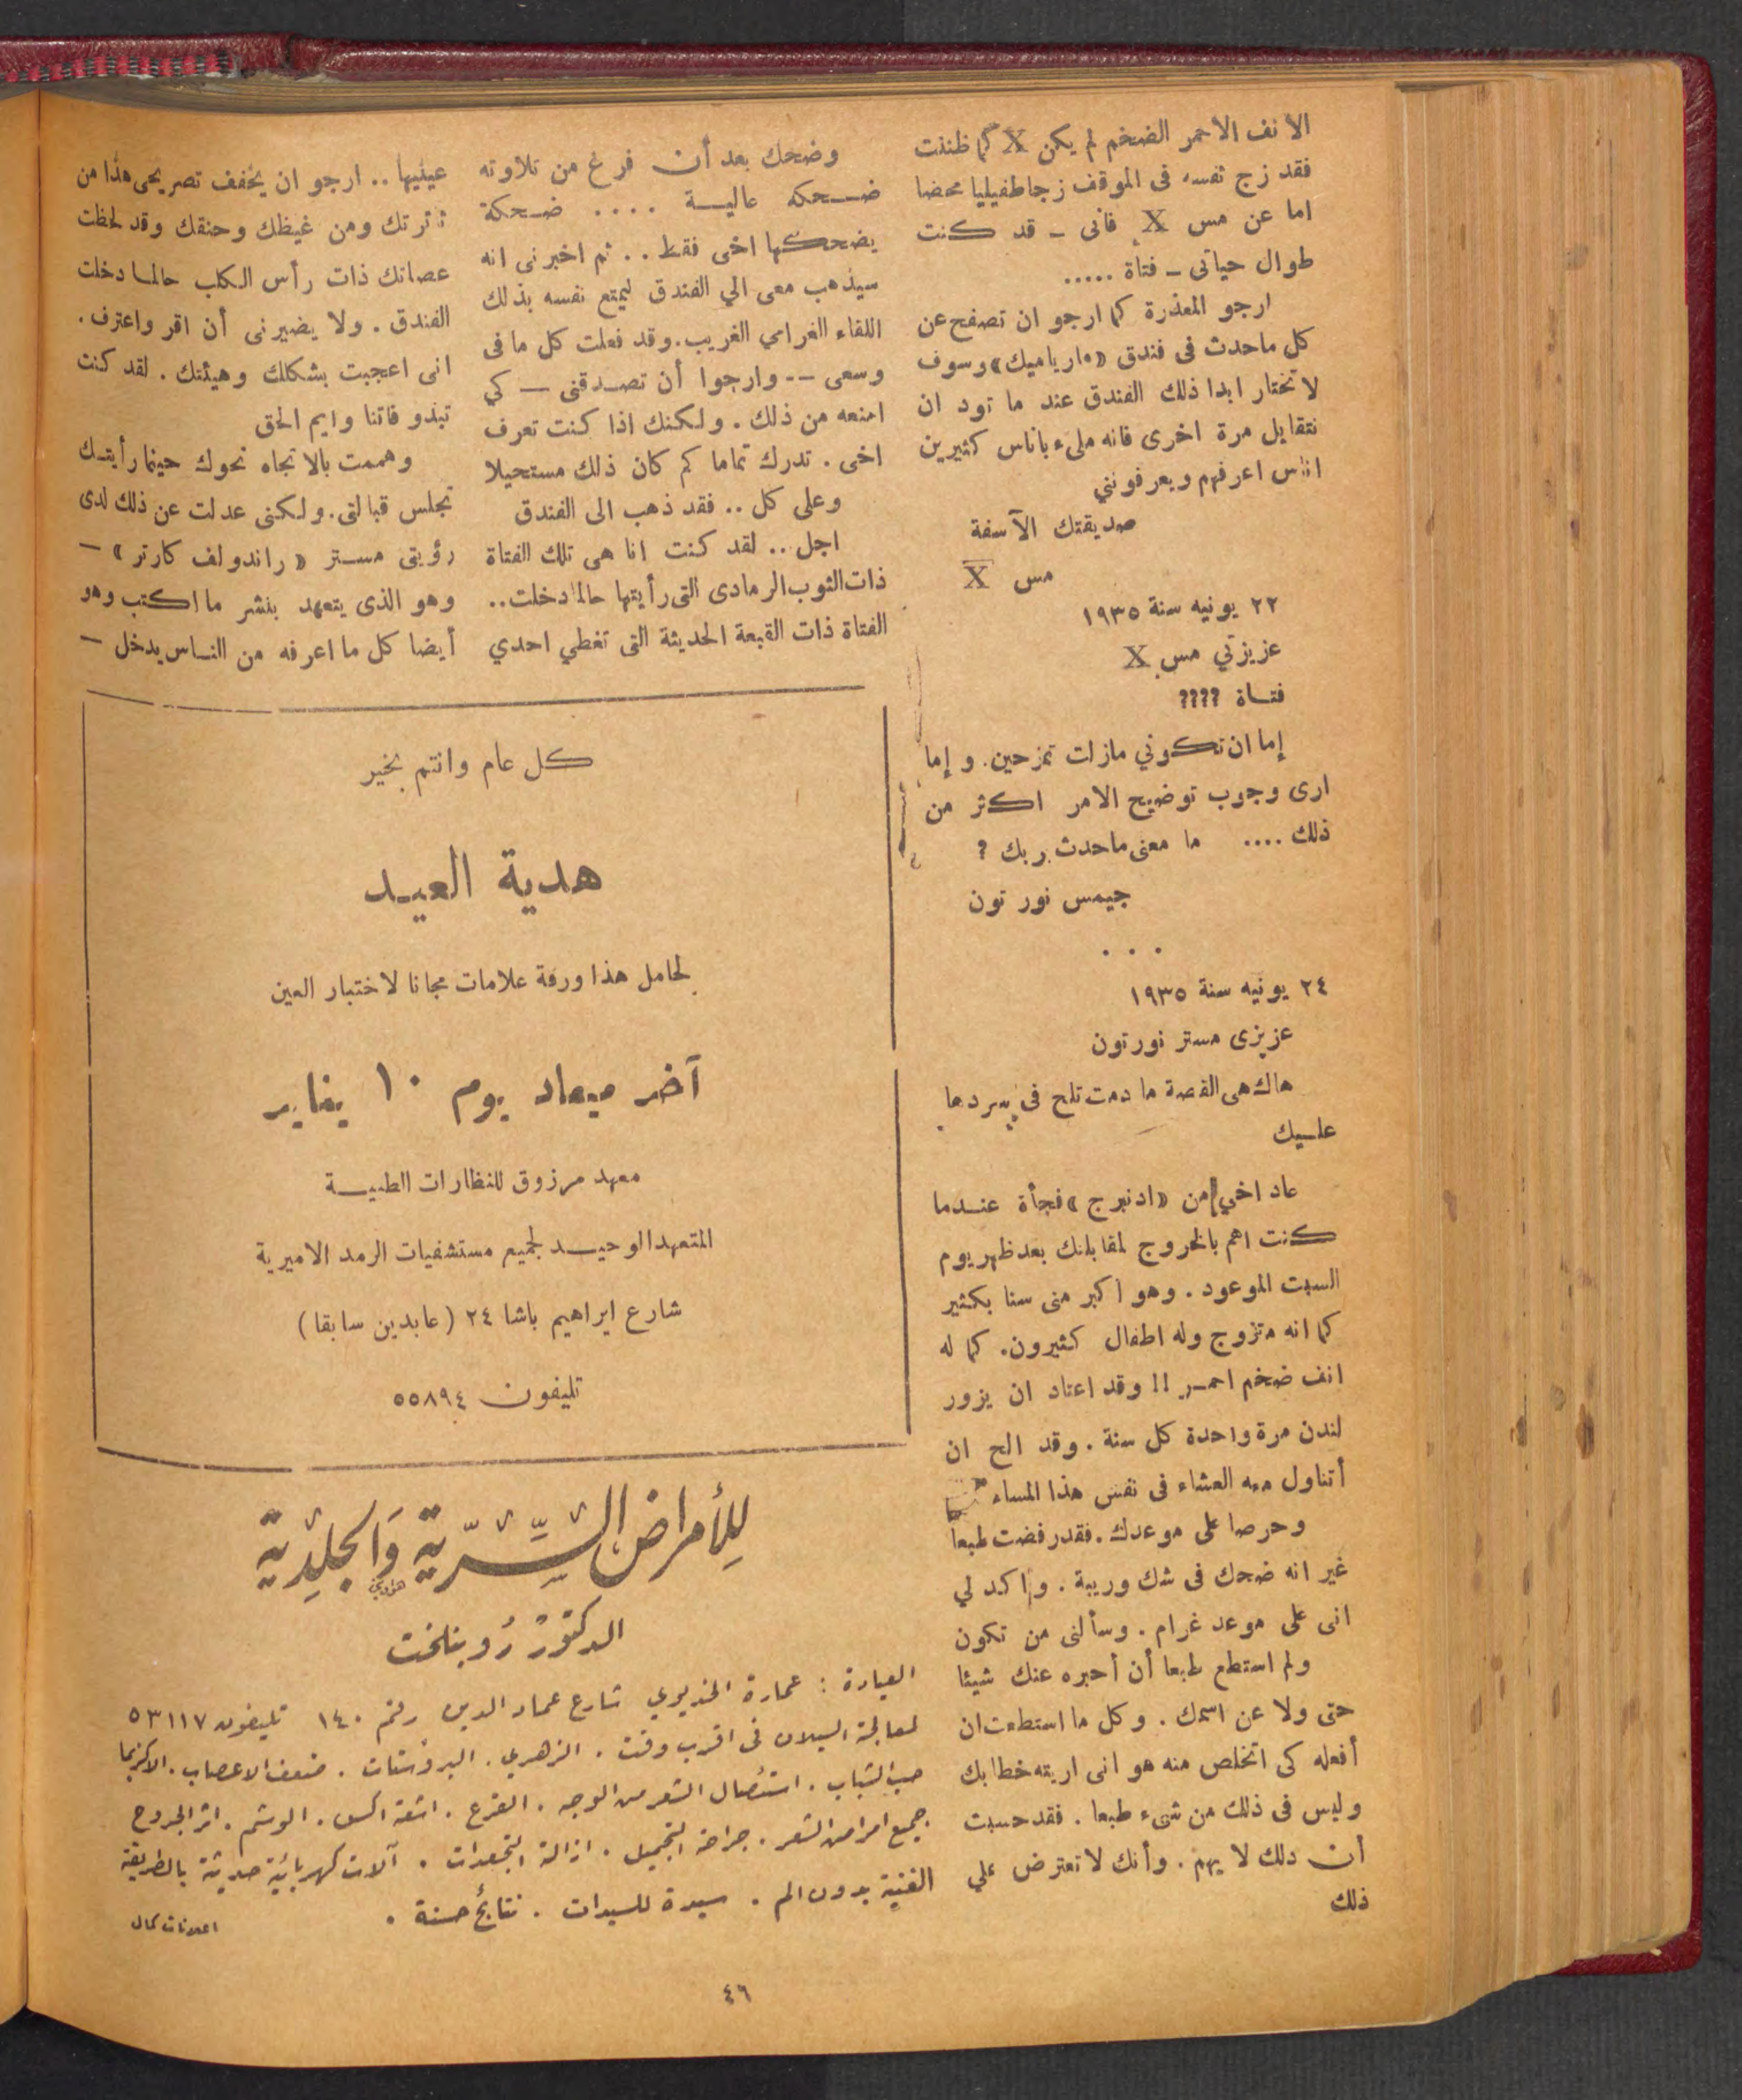 الانف الاحمر الضخم لم يكن X كما ظننت
فقد زج نفسه فى الموقف زجا طفيليا محضا
اما عن مس X فانى - قد كنت
طوال حياتى - فتاة .....
ارجو المعذرة كما ارجو ان تصفح عن
كل ماحدث فى فندق «مارياميك» وسوف
لا نختار ابدا ذلك الفندق عند ما تود ان
نتقابل مرة اخرى فانه ملىء باناس كثيرين
اناس اعرفهم ويعرفونني
صديقتك الآسفة
مس X
٢٢ يونيه سنة ١٩٣٥
عزيزتي مس X
فتاة ????
إما ان تكوني مازلت تمزحين. و إما
ارى وجوب توضيح الامر اكثر من
ذلك .... ما معنى ماحدث بربك ?
جيمس نور تون
. . .
٢٤ يونيه سنة ١٩٣٥
عزيزى مستر نورتون
هاك هى القصة ما دمت تلح فى سردها
عليك
عاد اخي من «ادنبرج» فجأة عندما
كنت اهم بالخروج لمقابلتك بعد ظهر يوم
السبت الموعود . وهو اكبر منى سنا بكثير
كما انه متزوج وله اطفال كثيرون. كما له
انف ضخم احمر !! وقد اعتاد ان يزور
لندن مرة واحدة كل سنة . وقد الح ان
أتناول معه العشاء فى نفس هذا المساء
وحرصا على موعدك . فقد رفضت طبعا
غير انه ضحك فى شك وريبة . واكد لي
انى على موعد غرام . وسألنى من تكون
ولم استطع طبعا أن أحبره عنك شيئا
حتى ولا عن اسمك . وكل ما استطعت ان
أفعله كى اتخلص منه هو انى اريته خطابك
وليس فى ذلك من شىء طبعا . فقد حسبت
أن دلك لا يهم . وأنك لا تعترض علي
ذلك
وضحك بعد أن فرغ من تلاوته
ضحكه عالية .... ضحكة
يضحكها اخى فقط .. ثم اخبرنى انه
سيذهب معى الي الفندق ليمتع نفسه بذلك
اللقاء الغرامي الغريب. وقد فعلت كل ما فى
وسعى -- وارجوا أن تصدقنى — كي
امنعه من ذلك . ولكنك اذا كنت تعرف
اخى . تدرك تماما كم كان ذلك مستحيلا
وعلى كل .. فقد ذهب الى الفندق
اجل .. لقد كنت انا هى تلك الفتاة
ذات الثوب الرمادى التى رأيتها حالما دخلت..
الفتاة ذات القبعة الحديثة التى تغطي احدي
عينيها .. ارجو ان يخفف تصريحى هذا من
ثائرتك ومن غيظك وحنقك وقد لحظت
عصاتك ذات رأس الكلب حالما دخلت
الفندق . ولا يضيرنى أن اقر واعترف .
انى اعجبت بشكلك وهيئتك . لقد كنت
تبدو فاتنا وايم الحق
وهممت بالاتجاه نحوك حينما رأيتك
تجلس قبالتى. ولكنى عدلت عن ذلك لدى
رؤيتى مستر « راندولف كارتر » —
وهو الذى يتعهد بنشر ما اكتب وهو
أيضا كل ما اعرفه من الناس يدخل —
كل عام وانتم بخير
هدية العيد
لحامل هذا ورقة علامات مجانا لاختبار العين
آخر ميعاد يوم ١٠ يناير
معهد مرزوق للنظارات الطبية
المتعهد الوحيد لجميع مستشفيات الرمد الاميرية
شارع ابراهيم باشا ٢٤ (عابدين سابقا)
تليفون ٥٥٨٩٤
للأمراض السِّرّية وَالجلديّة
الدكتور روبناخت
العيادة : عمارة الخديوي شارع عماد الدين رقم ١٤٠ تليفون ٥٣١١٧
لمعالجة السيلان فى اقرب وقت . الزهري . البروستات . ضعف الاعصاب . الاكزيما
حب الشباب . استئصال الشعر من الوجه . القرع . اشعة اكس . الوشم . اثر الجروح
جميع امراض الشعر . جراحة التجميل . ازالة التجعدات . آلات كهربائية حديثة بالطريقة
الفنية بدون الم . سيدة للسيدات . نتائج حسنة .
اعلانات كمال
٤٦